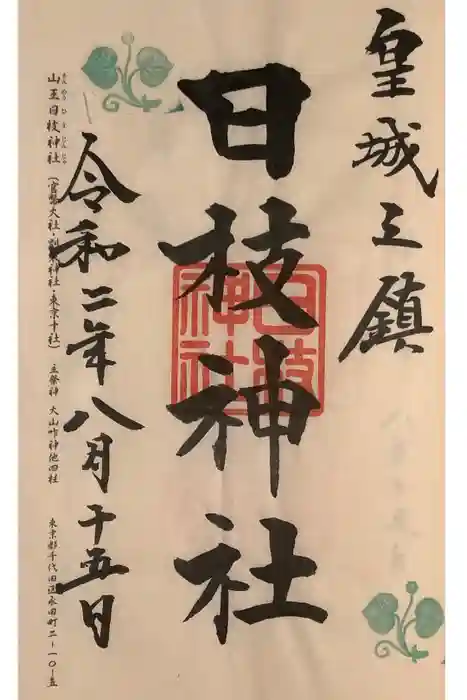 皇城之鎮
日枝神社
日枝神社
令和二年八月十五日
さんのうひえじんじゃ
山王日枝神社(官幣大社・別表神社・東京十社) 主祭神 大山咋神他四柱 東京都千代田区永田町二ー一〇ー五